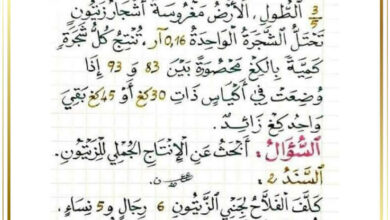 3/5 الطُّولِ، الْأَرْضُ مَغْرُوسَةٌ أَشْجَارَ زَيْتُونٍ
تَحْتَلُّ الشَّجَرَةُ الْوَاحِدَةُ 0,16 آر. تُنْتِجُ كُلُّ شَجَرَةٍ
كَمِّيَّةً بِالْكِغْ مَحْصُورَةً بَيْنَ 83 و 93 إِذَا
وُضِعَتْ فِي أَكْيَاسٍ ذَاتِ 30كغ أَوْ 45كغ بَقِيَ
وَاحِدُ كِغْ زَائِدٌ.
السُّؤَالُ: أَبْحَثُ عَنِ الْإِنْتَاجِ الْجُمْلِي لِلزَّيْتُونِ.
السَّنَدُ 2:
كَلَّفَ الْفَلَّاحُ لِجَنْيِ الزَّيْتُونِ 6 رِجَالٍ و5 نِسَاءٍ.